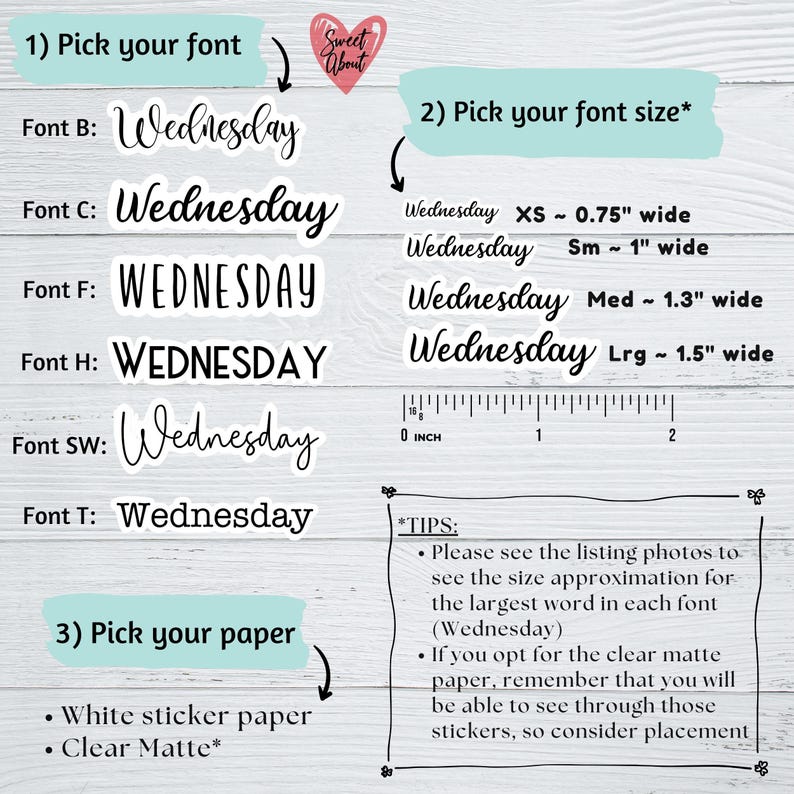 1) Pick your font
Sweet
About
Font B: Wednesday
Font C: Wednesday
Font F: WEDNESDAY
Font H: WEDNESDAY
Font SW: Wednesday
Font T: Wednesday
2) Pick your font size*
Wednesday XS ~ 0.75" wide
Wednesday Sm ~ 1" wide
Wednesday Med ~ 1.3" wide
Wednesday Lrg ~ 1.5" wide
16 8
0 INCH 1 2
3) Pick your paper
• White sticker paper
• Clear Matte*
*TIPS:
• Please see the listing photos to
see the size approximation for
the largest word in each font
(Wednesday)
• If you opt for the clear matte
paper, remember that you will
be able to see through those
stickers, so consider placement